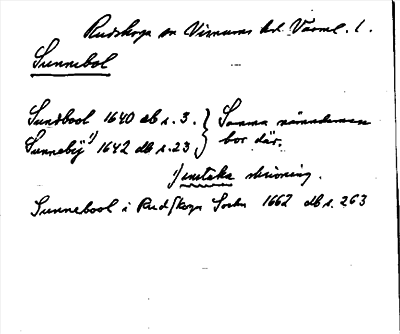 Rudskoga sn Visnums hd Värml. l.
Sunnebol
Sundbool 1640 db s. 3. } Samma nämndeman
Sunneby 1) 1642 db s. 23 } bor där.
1) enstaka skrivning.
Sunnebool i Rudskoga Sochn 1662 db s. 263